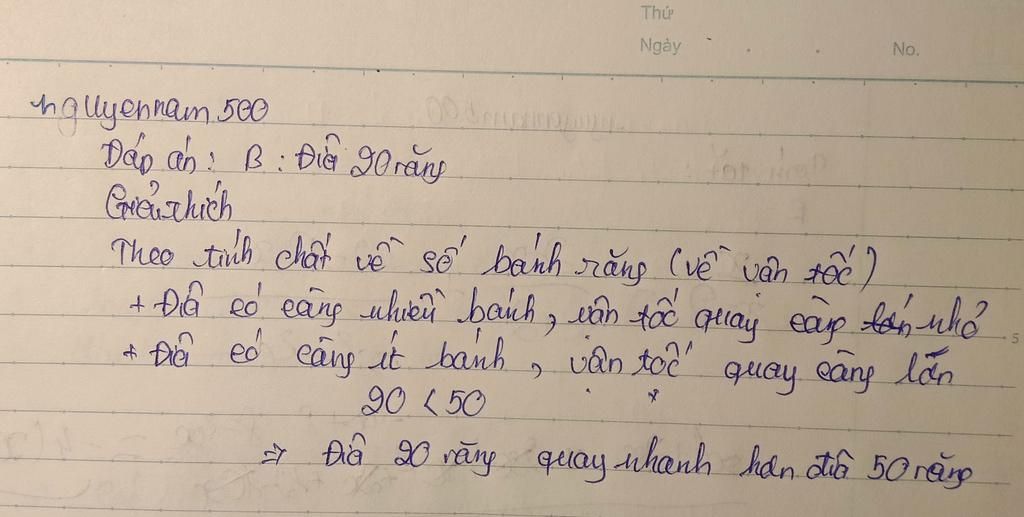 Thứ
Ngày . . No.
nguyennam500
Đáp án: B: Đĩa 20 răng
Giải thích
Theo tính chất về số bánh răng (về vận tốc)
+ Đĩa có càng nhiều bánh, vận tốc quay càng nhỏ
+ Đĩa có càng ít bánh, vận tốc quay càng lớn
20 < 50
=> Đĩa 20 răng quay nhanh hơn đĩa 50 răng